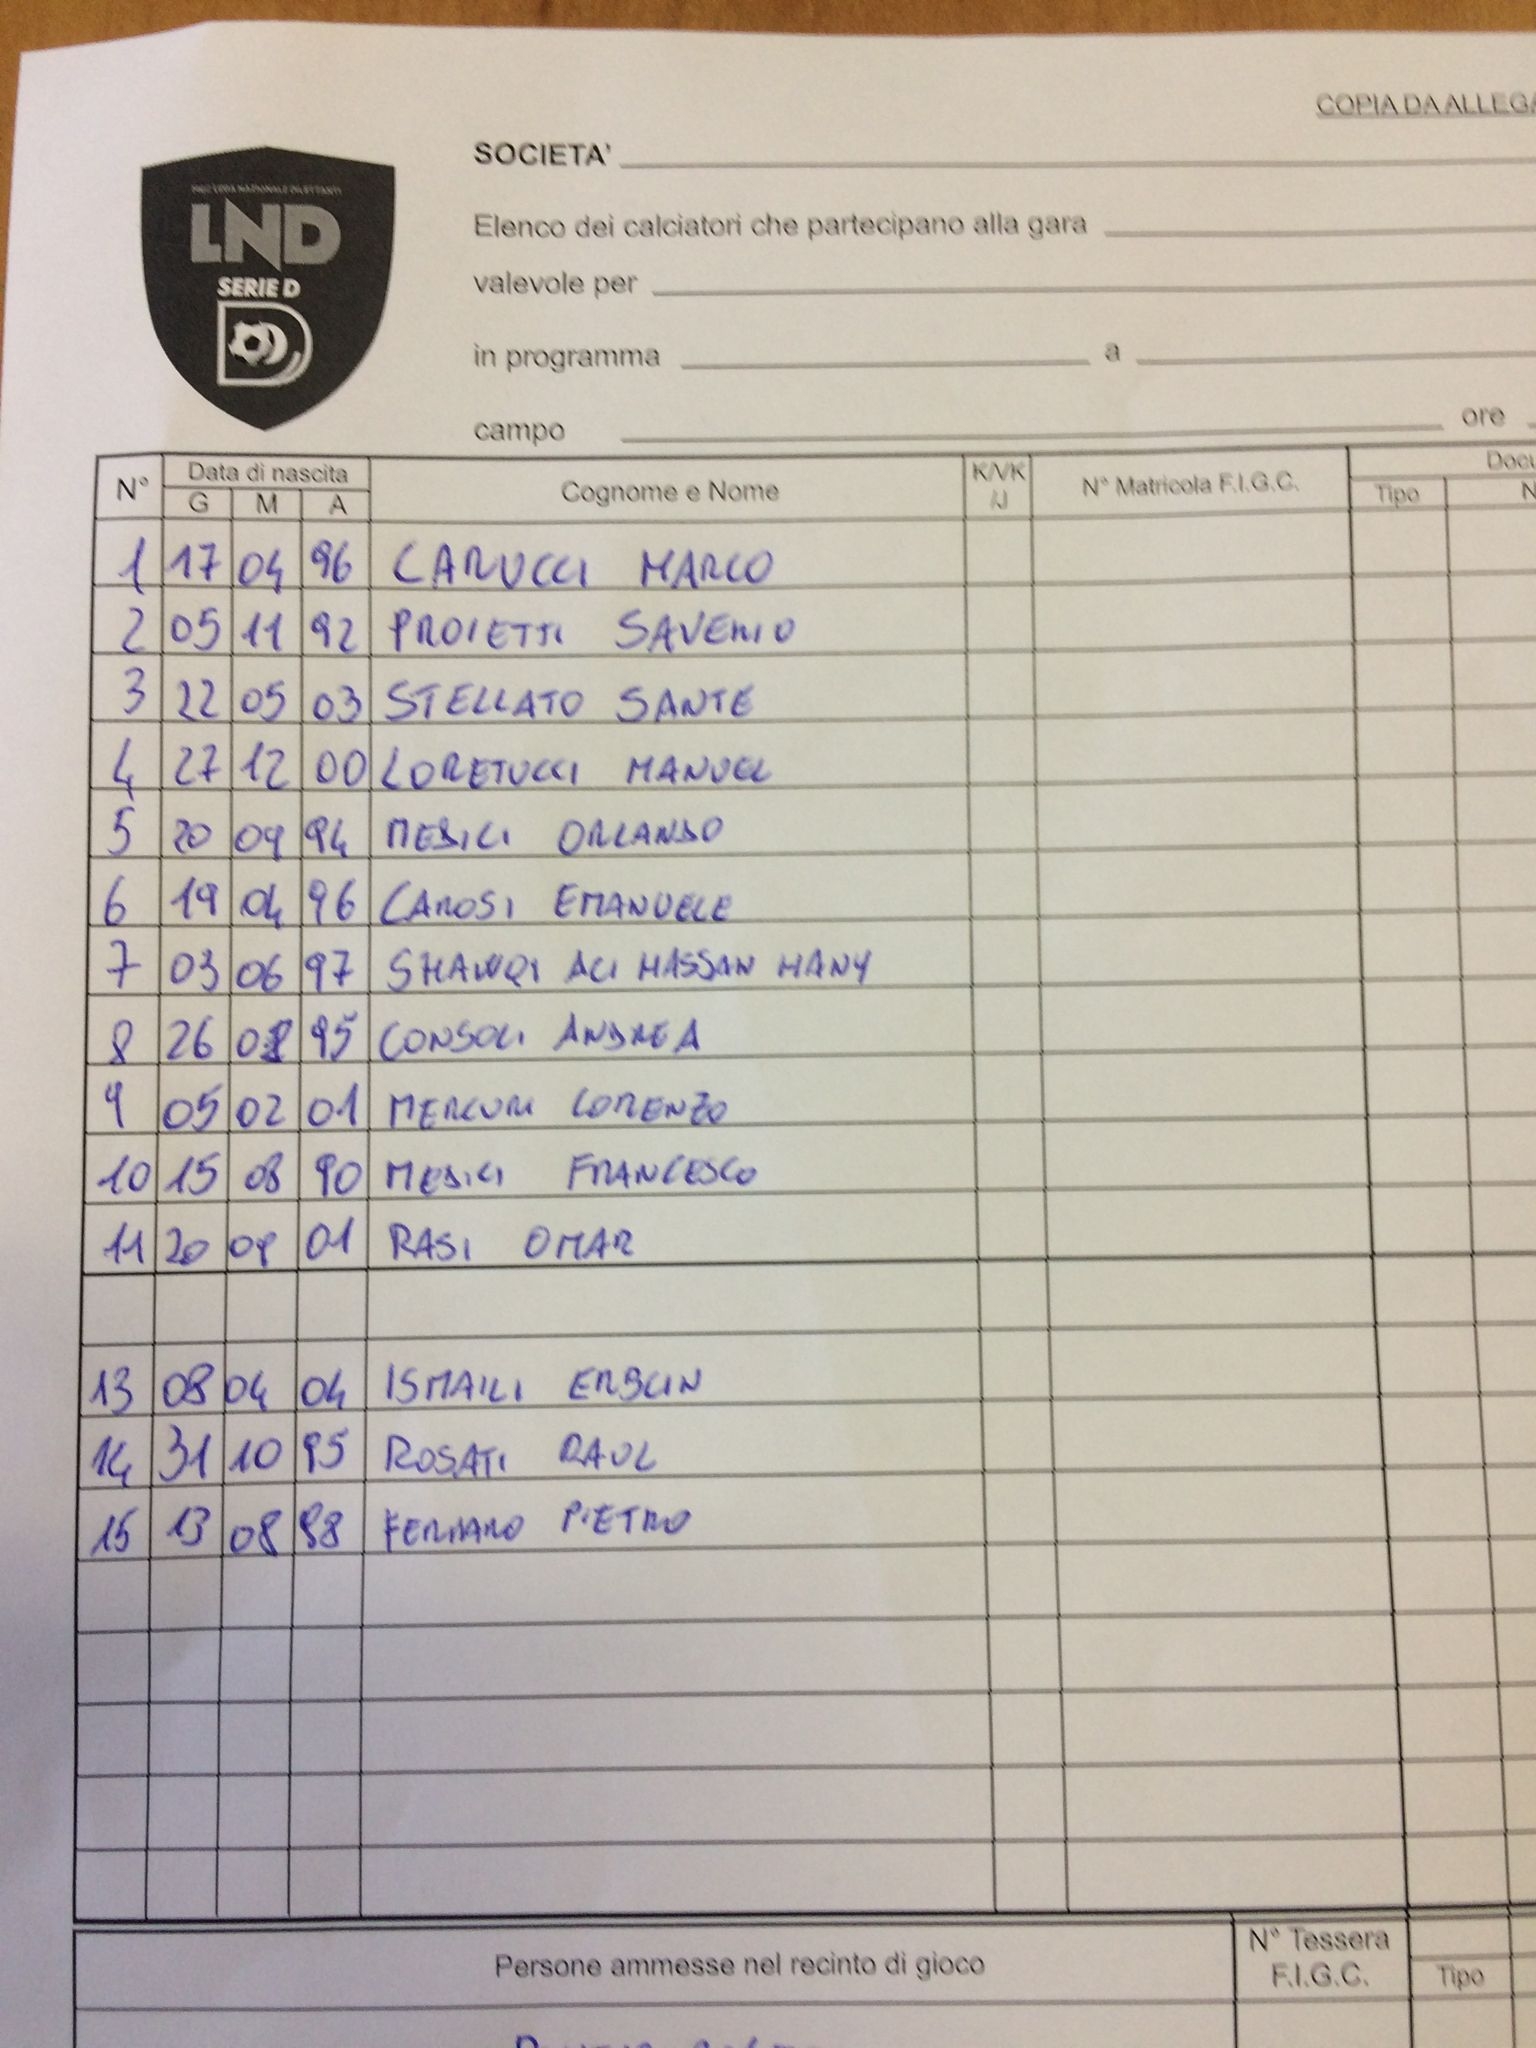 COPIA DA ALLEGA
FIGC LEGA NAZIONALE DILETTANTI
LND
SERIE D
SOCIETA'
Elenco dei calciatori che partecipano alla gara
valevole per
in programma a
campo ore
N° Data di nascita Cognome e Nome K/VK /J N° Matricola F.I.G.C. Docu
G M A Tipo N
1 17 04 96 CARUCCI MARCO
2 05 11 92 PROIETTI SAVERIO
3 22 05 03 STELLATO SANTE
4 27 12 00 LORETUCCI MANUEL
5 20 09 94 MEDICI ORLANDO
6 19 04 96 CAROSI EMANUELE
7 03 06 97 SHAWQI ALI HASSAN HANY
8 26 95 CONSOLI ANDREA
9 05 02 01 MERCURI LORENZO
10 15 08 90 MEDICI FRANCESCO
11 20 09 01 RASI OMAR
13 08 04 04 ISMAILI ERBLIN
14 31 10 95 ROSATI RAUL
15 13 08 98 FERRARO PIETRO
Persone ammesse nel recinto di gioco N° Tessera F.I.G.C. Tipo